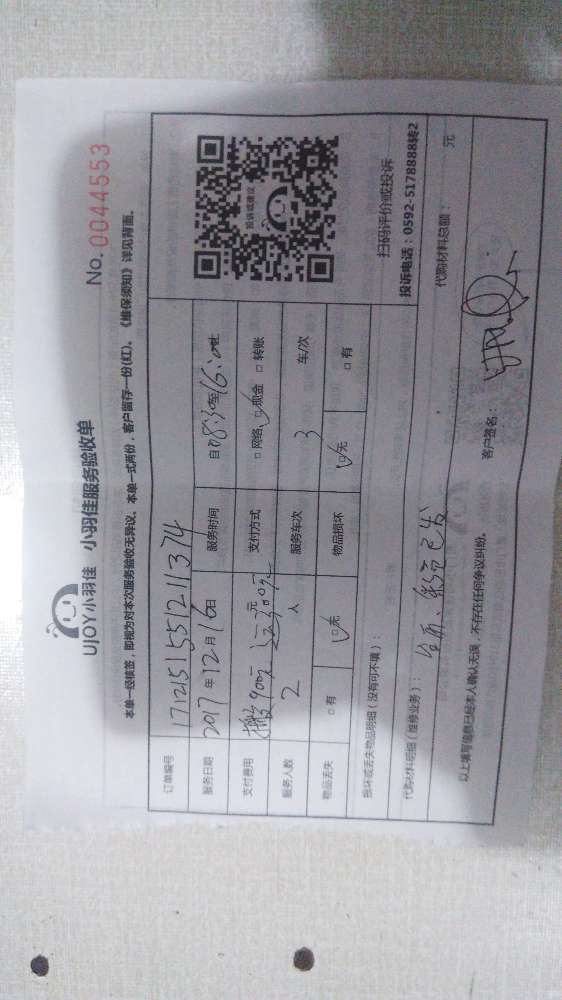 UJOY 小羽佳 小羽佳服务验收单
No. 0044553
本单一经核签，即视为对本次服务验收无异议。本单一式两份，客户留存一份(红)。《维保须知》详见背面。
订单编号 171215155121 1374
服务日期 2017年12月16日 服务时间 自08:30至16:00止
支付费用 搬 900元 元 支付方式 □网络 ☑现金 □转账
服务人数 2 人 服务车次 3 车/次
物品丢失 □有 ☑无 物品损坏 ☑无 □有
投诉或建议
扫码评价或投诉
投诉电话：0592-5178888转2
损坏或丢失物品明细（没有可不填）：
代购材料明细（维修业务）： 代购材料总额： 元
已发
以上填写信息已经本人确认无误，不存在任何争议纠纷。
客户签名：